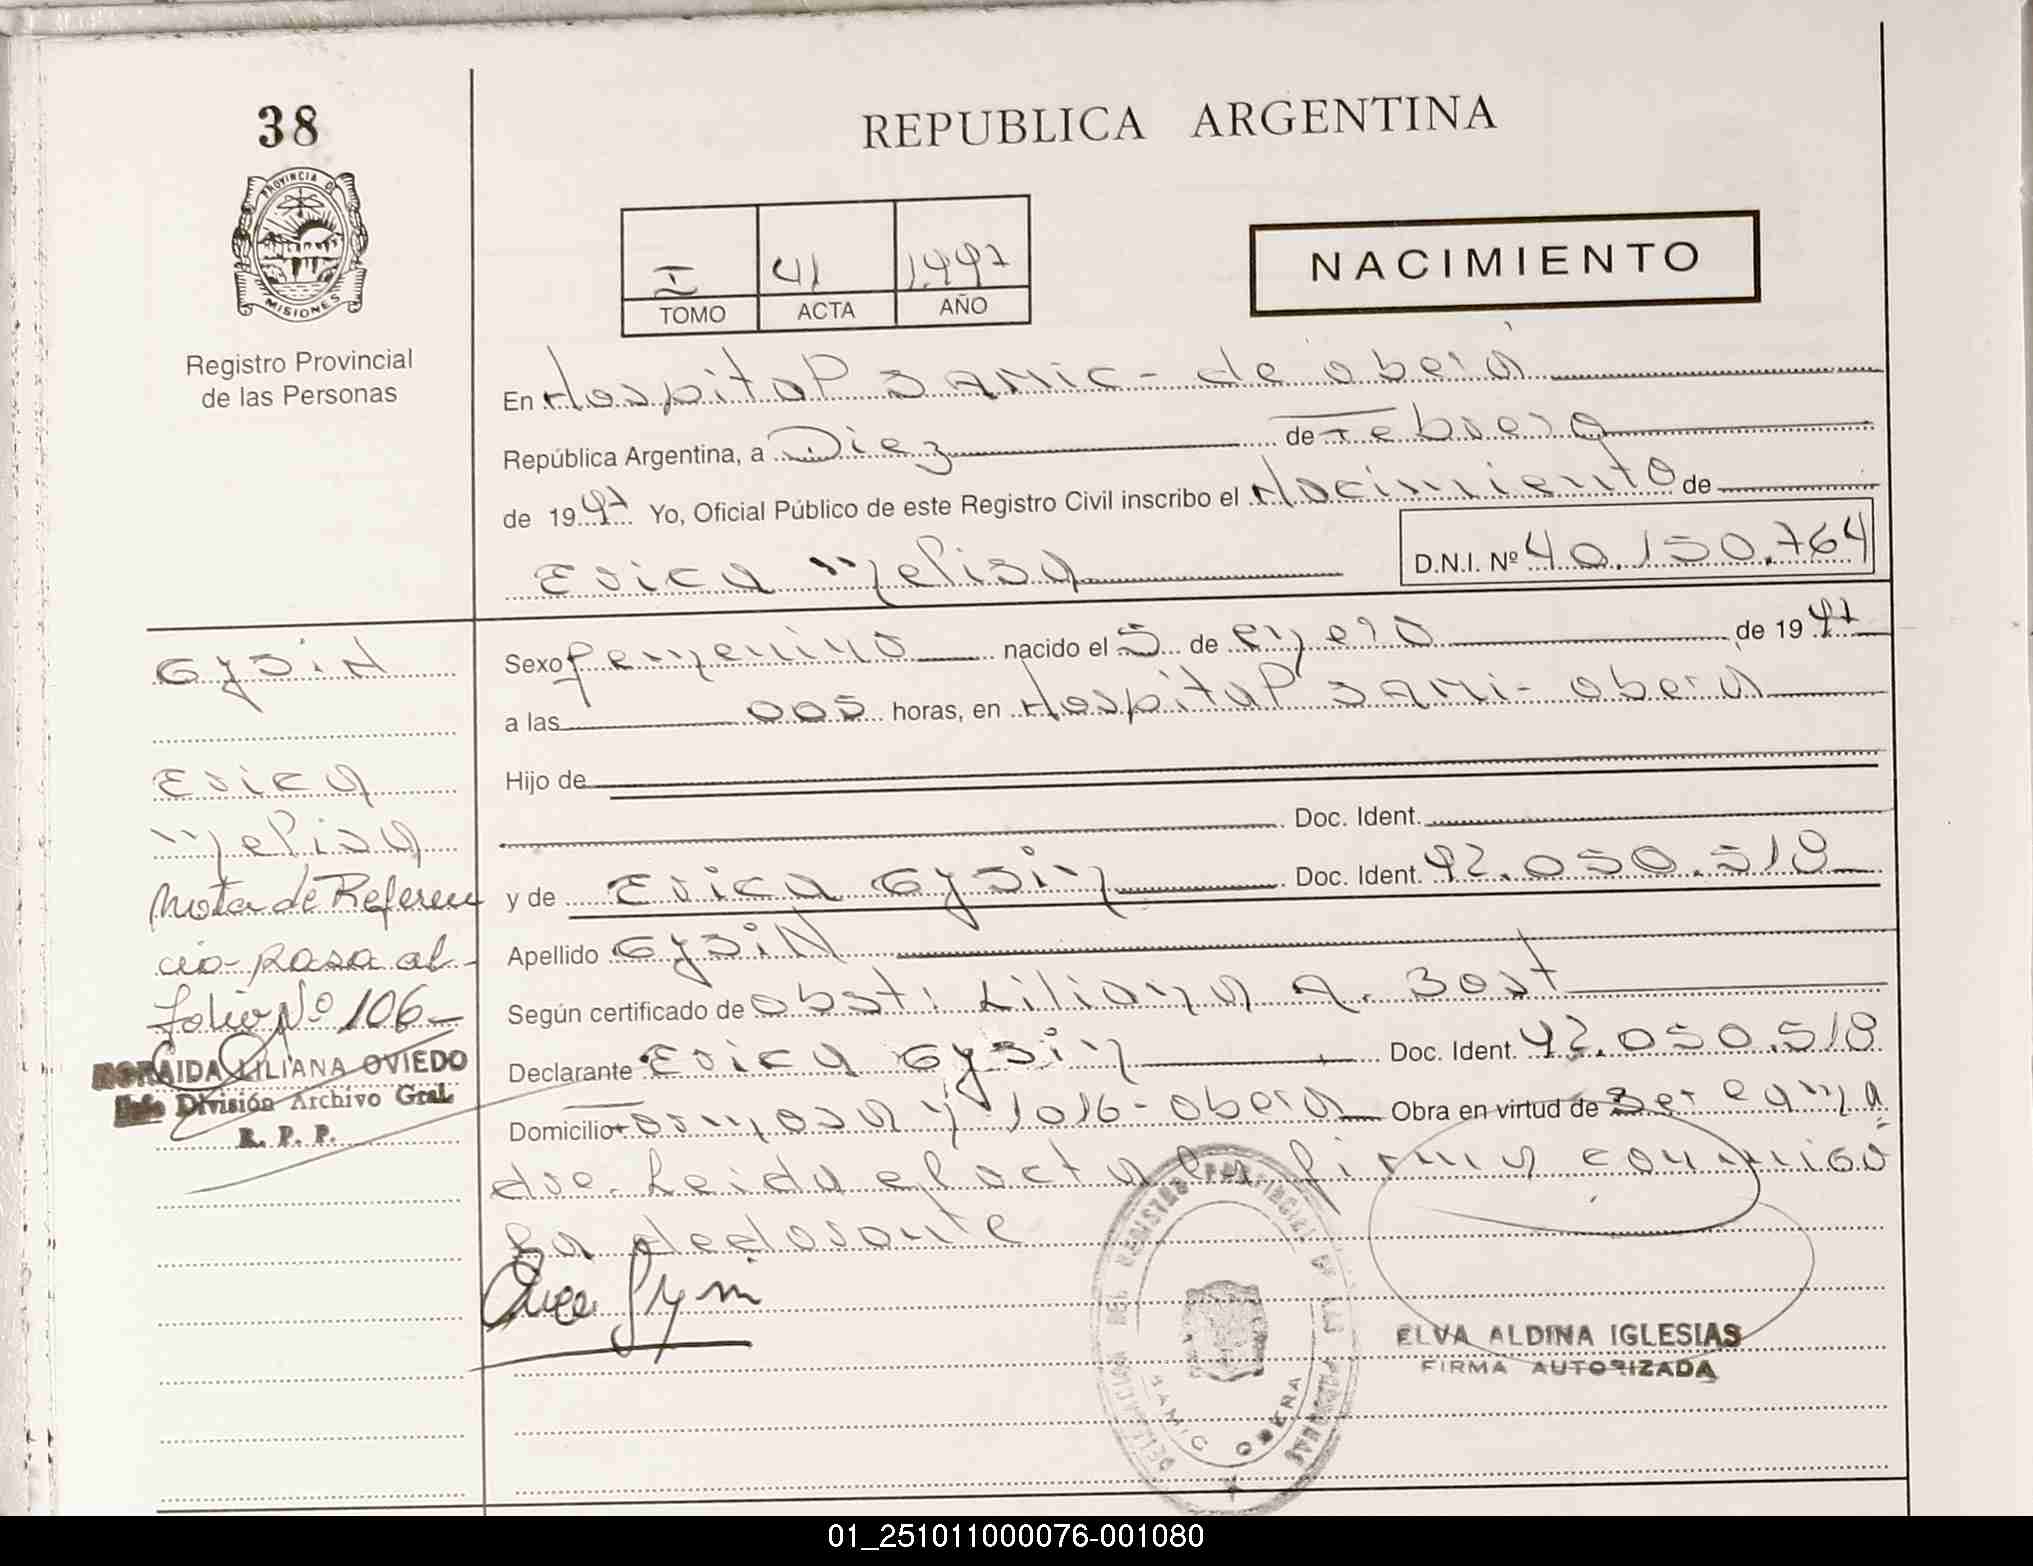 38
REPUBLICA ARGENTINA
PROVINCIA D
MISIONES
Registro Provincial
de las Personas
I 41 1.997
TOMO ACTA AÑO
NACIMIENTO
En Hospital SAMIC - de oberá
República Argentina, a Diez de Febrero
de 1997 Yo, Oficial Público de este Registro Civil inscribo el Nacimiento de
Erica Melisa D.N.I. Nº 40.150.764
GysiN
Erica
Melisa
Nota de Referen
cia - pasa al
folio Nº 106 -
ZORAIDA LILIANA OVIEDO
Jefe División Archivo Gral.
R. P. P.
Sexo femenino nacido el 5 de enero de 1997
a las 005 horas, en Hospital SAMi - obera
Hijo de
Doc. Ident.
y de Erica Gysin Doc. Ident. 92.050.518
Apellido GysiN
Según certificado de obst: Liliana A. Bost
Declarante Erica Gysin Doc. Ident. 92.050.518
Domicilio Formosa Nº 1016 - obera Obra en virtud de ser e a ma
dre. Leida el acta la firma conmigo
la declarante
Erica Gysin
DELEGACION DEL REGISTRO PROVINCIAL DE LAS PERSONAS
SAMIC OBERA
ELVA ALDINA IGLESIAS
FIRMA AUTORIZADA
01_251011000076-001080